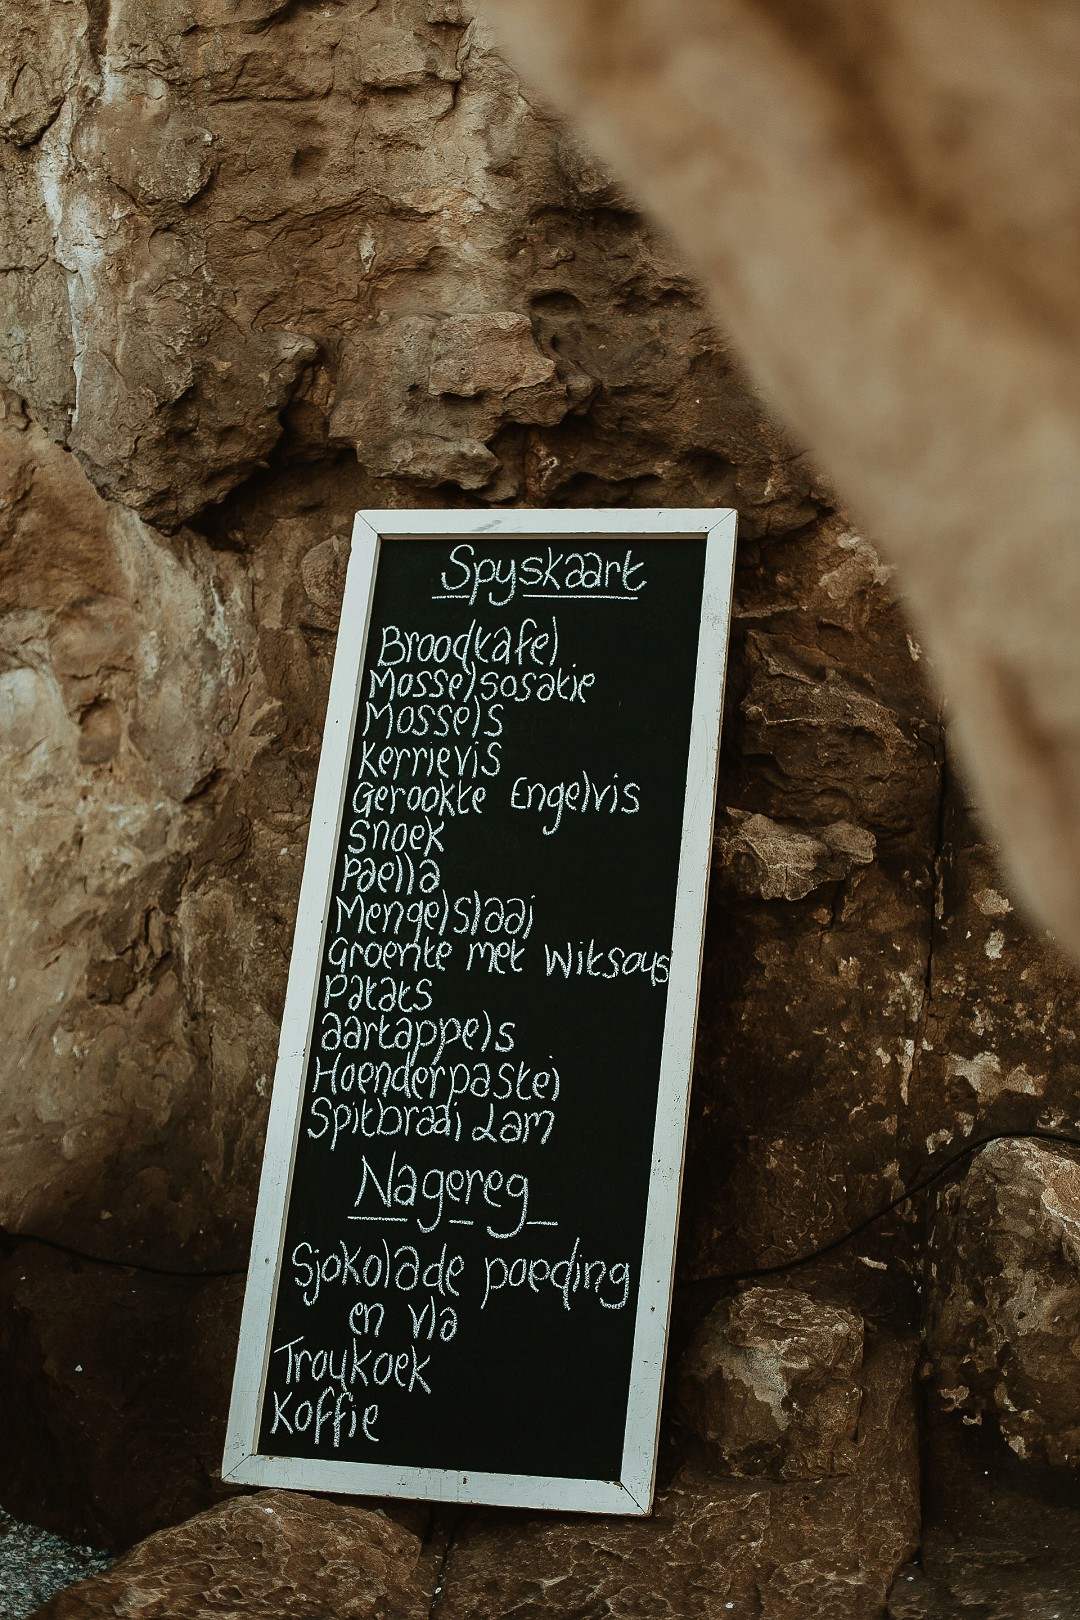 Spyskaart
Broodtafel
Mosselsosatie
Mossels
Kerrievis
Gerookte Engelvis
Snoek
Paella
Mengelslaai
Groente met Witsous
Patats
aartappels
Hoenderpastei
Spitbraai Lam
Nagereg
Sjokolade poeding
en vla
Troukoek
Koffie